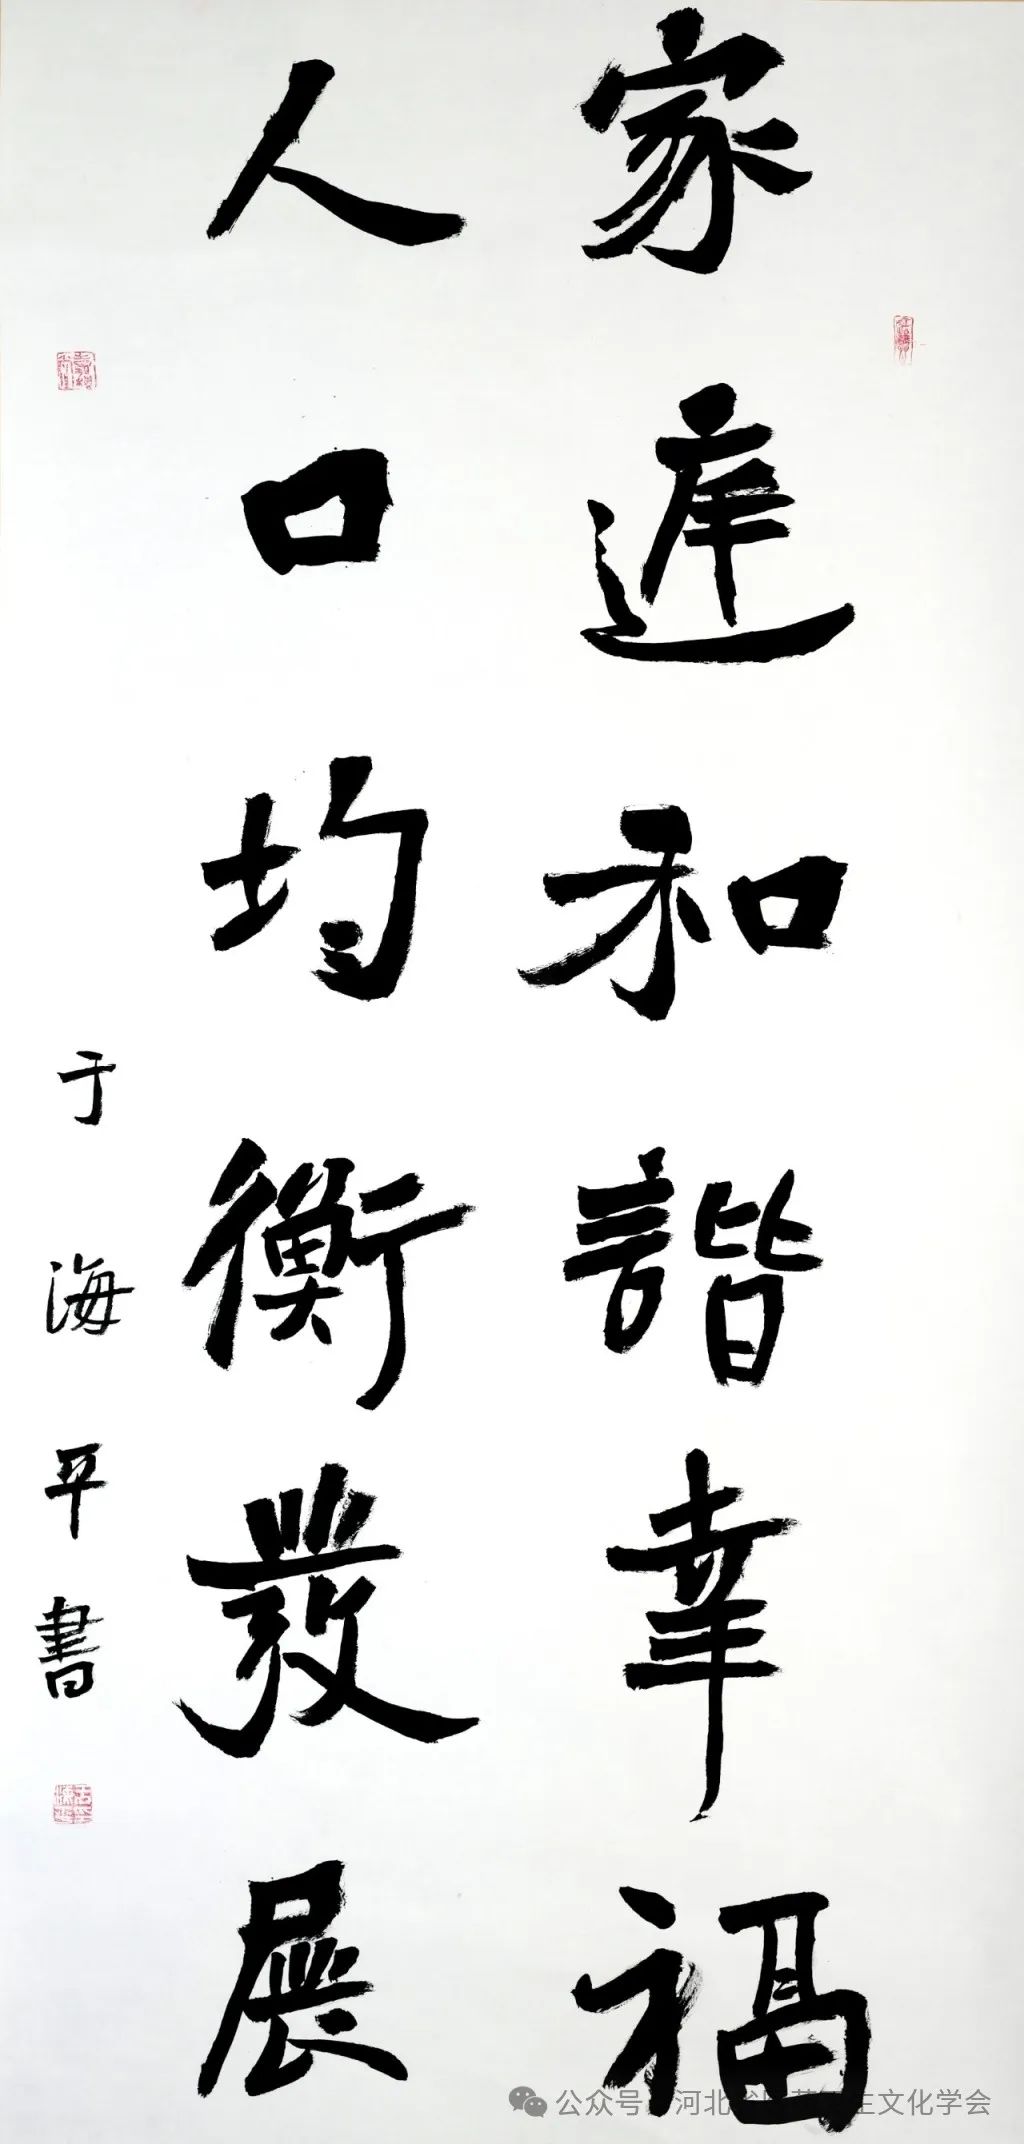 家庭和諧幸福
人口均衡發展
于海平書
公众号 河北 生文化学会